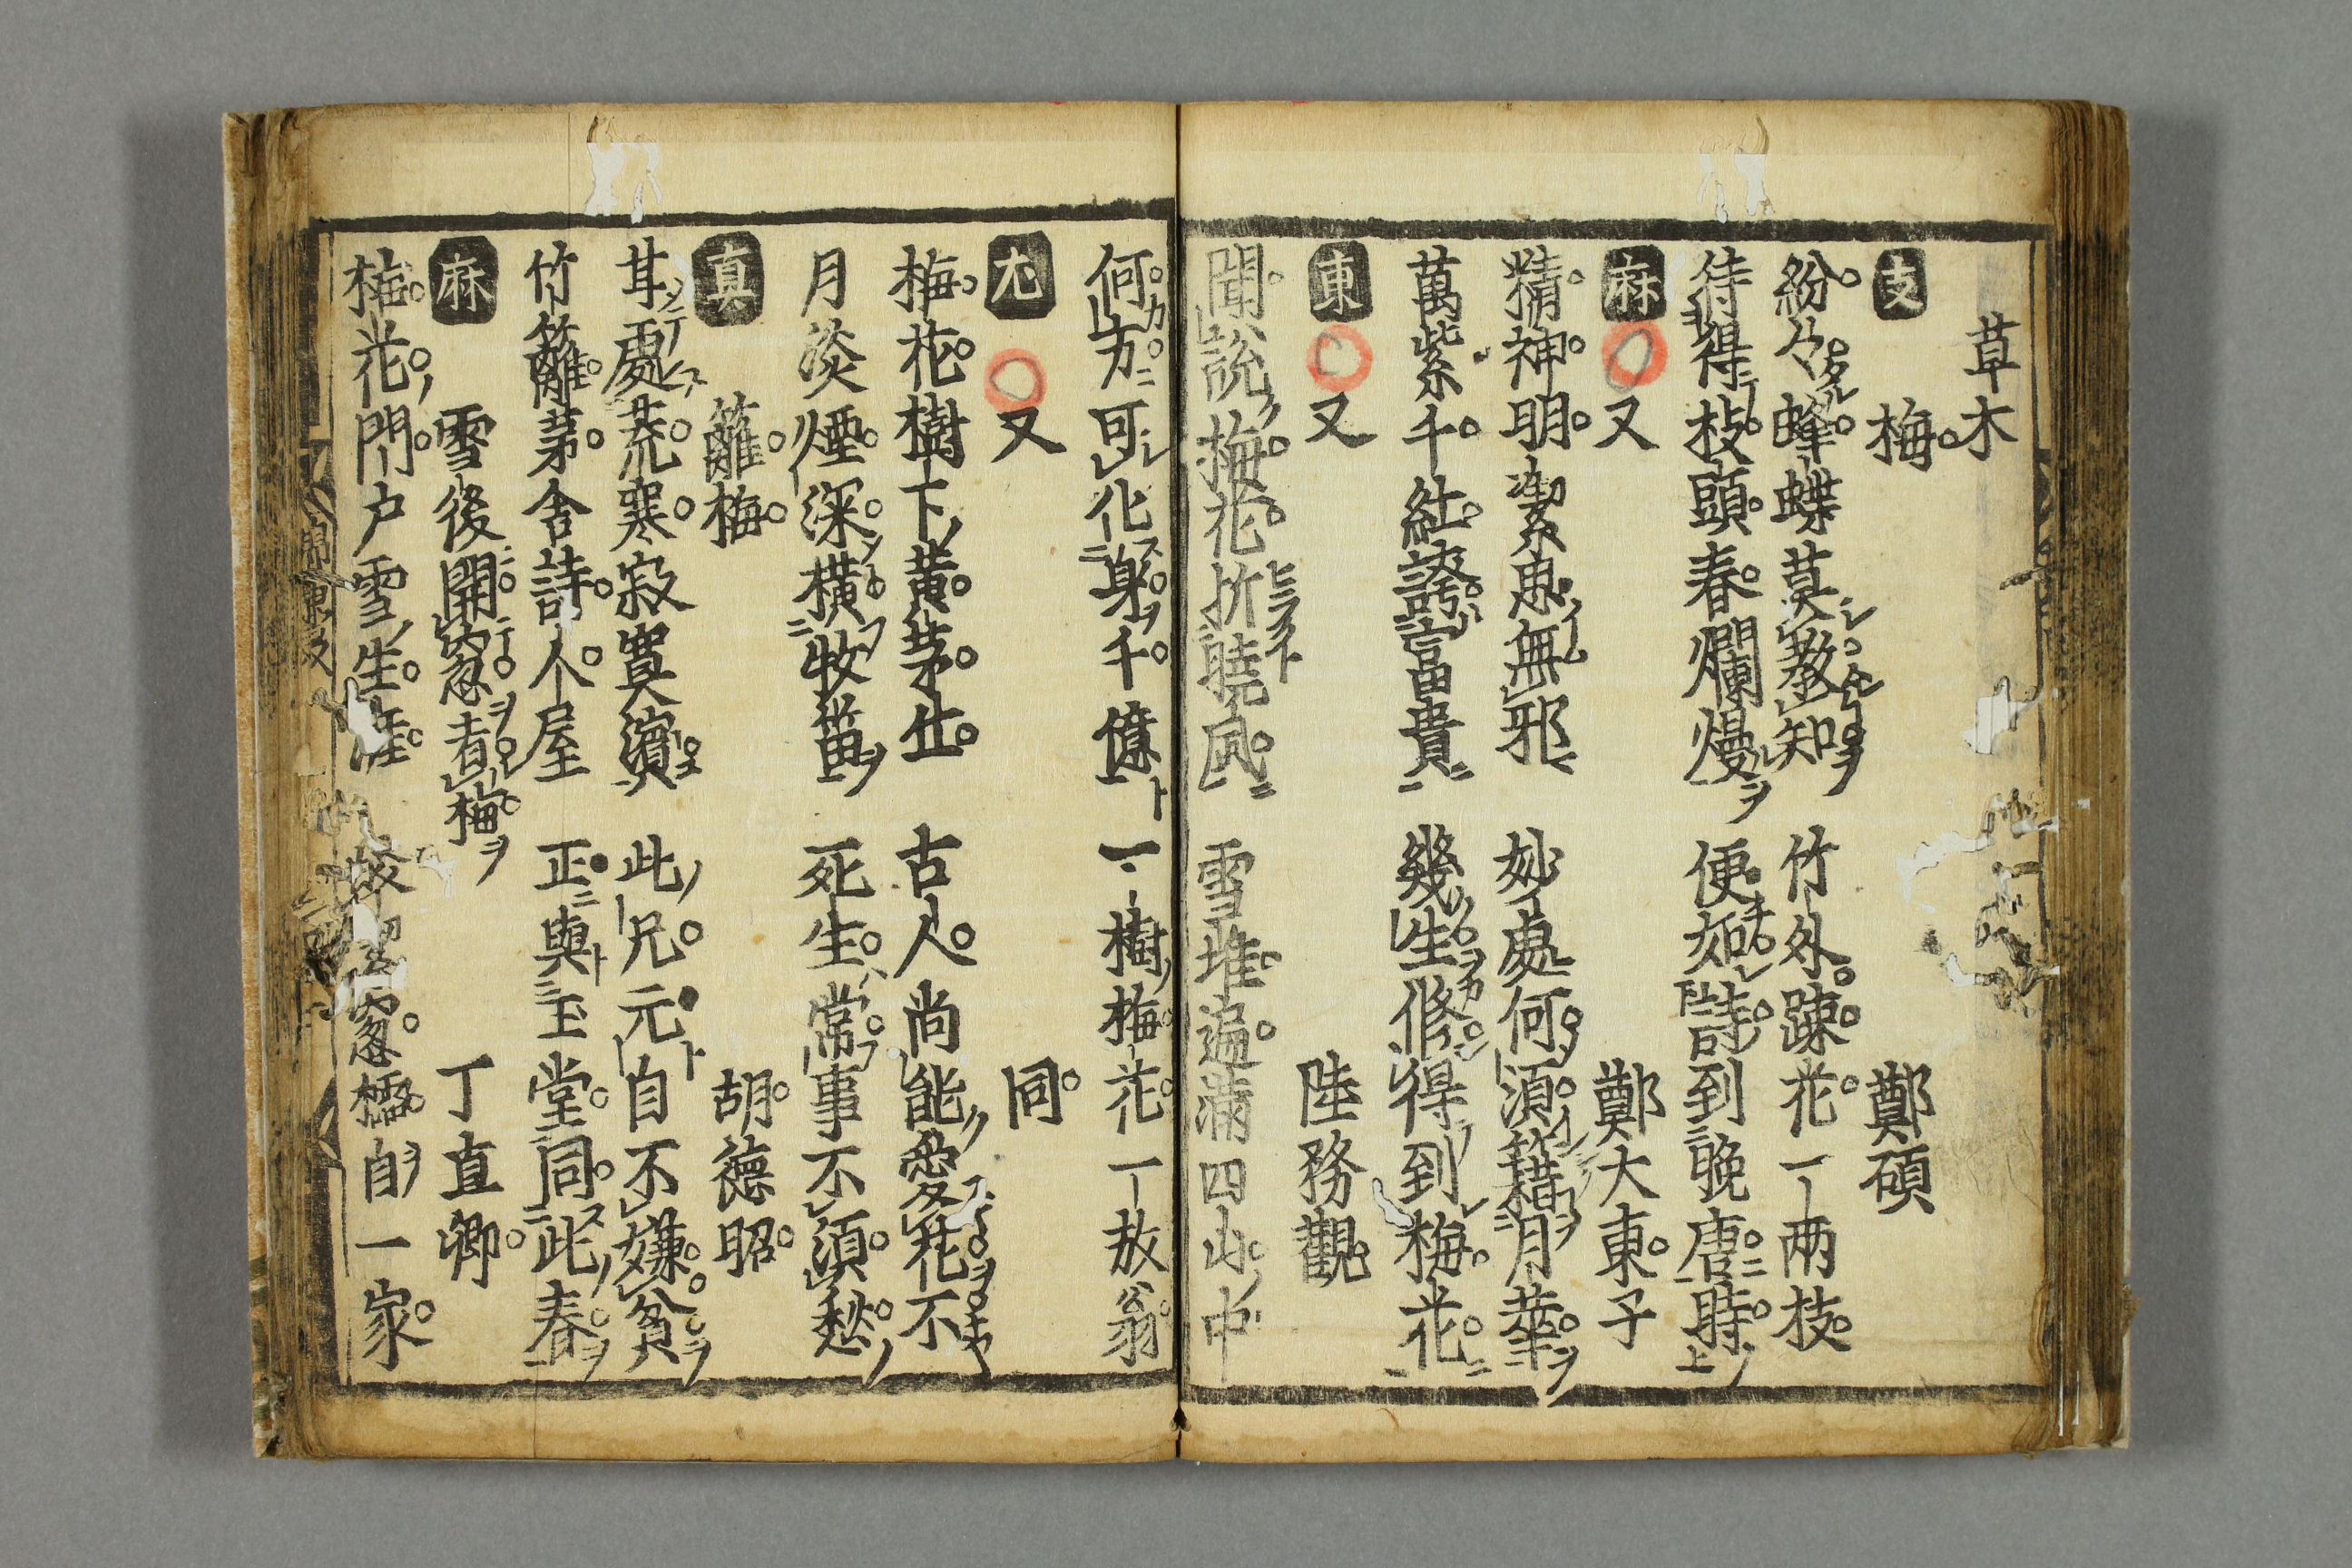 草木
支 梅 鄭碩
紛々蜂蝶莫教知 竹外踈花一両枝
待得枝頭春爛熳 便知詩到晩唐時
麻 又 鄭大東子
精神明潔思無邪 妙處何須籍月華
萬紫千紅誇富貴 幾生修得到梅花
東 又 陸務觀
聞說梅花折曉風 雪堆遍滿四山中
何方可化身千億 一樹梅花一放翁
尤 又 同
梅花樹下黄茅丘 古人尚能愛花不
月淡煙深橫牧笛 死生常事不須愁
真 籬梅 胡德昭
甘處荒寒寂寞濱 此兄元自不嫌貧
竹籬茅舍詩人屋 正與玉堂同此春
麻 雪後開窓看梅 丁直卿
梅花門戸雪生涯 皎 窓櫺自一家